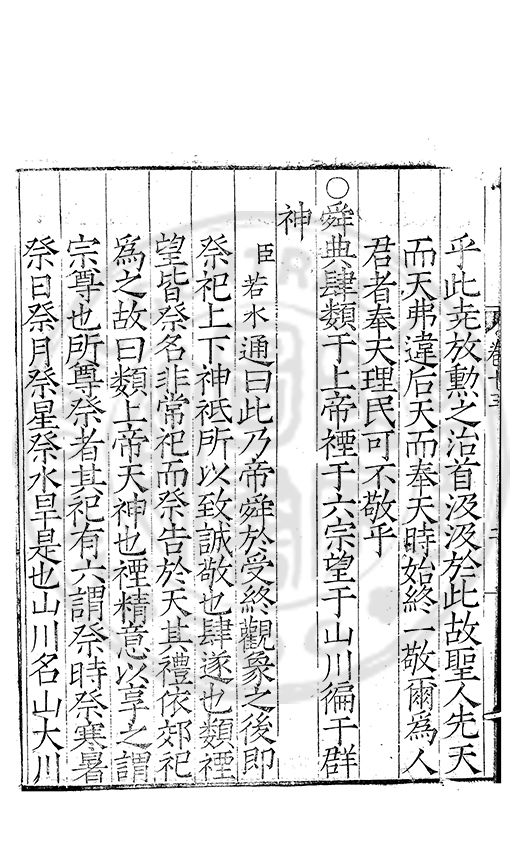 卷十三
二
乎此堯放勳之治首汲汲於此故聖人先天
而天弗違后天而奉天時始終一敬爾為人
君者奉天理民可不敬乎
○舜典肆類于上帝禋于六宗望于山川徧于群
神
臣若水通曰此乃帝舜於受終觀象之後即
祭祀上下神祇所以致誠敬也肆遂也類禋
望皆祭名非常祀而祭告於天其禮依郊祀
為之故曰類上帝天神也禋精意以享之謂
宗尊也所尊祭者其祀有六謂祭時祭寒暑
祭日祭月祭星祭水旱是也山川名山大川